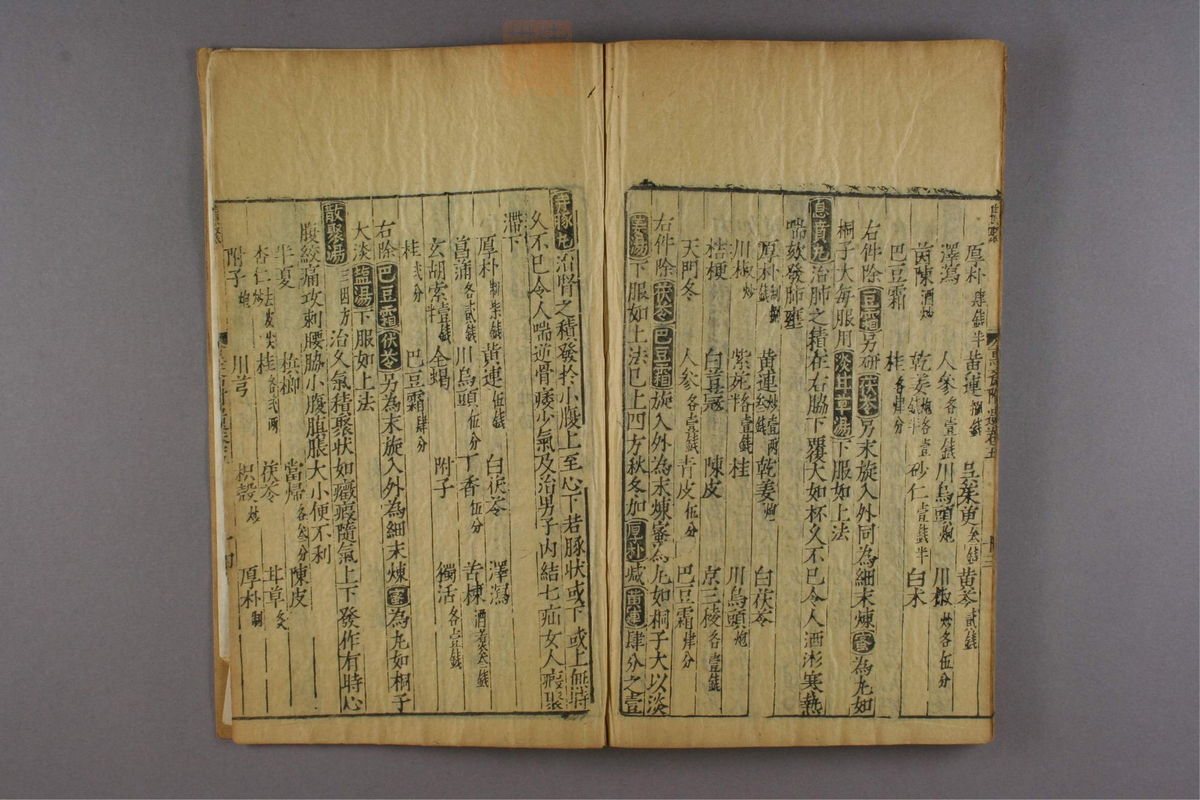 厚朴肆錢半 黃連捌錢 吳茱萸叁錢 黃芩貳錢
澤瀉 人參各壹錢 川烏頭炮 川椒炒各伍分
茵陳酒炒 乾姜炮各壹錢半 砂仁壹錢半 白朮
巴豆霜 桂各肆分
右件除豆霜另研茯苓另末旋入外同為細末煉蜜為丸如
桐子大每服用淡甘草湯下服如上法
息賁丸治肺之積在右脇下覆大如杯久不已令人洒淅寒熱
喘欬發肺壅
厚朴制捌錢 黃連炒壹兩叁錢 乾姜炮 白茯苓
川椒炒 紫菀各壹錢半 桂 川烏頭炮
桔梗 白荳蔻 陳皮 京三稜各壹錢
天門冬 人參各壹錢 青皮伍分 巴豆霜肆分
右件除茯苓巴豆霜旋入外為末煉蜜為丸如桐子大以淡
姜湯下服如上法已上四方秋冬加厚朴減黃連肆分之壹
奔豚丸治腎之積發於小腹上至心下若豚狀或下或上無時
久不已令人喘逆骨痿少氣及治男子內結七疝女人瘕聚
滯下
厚朴制柒錢 黃連伍錢 白茯苓 澤瀉
菖蒲各貳錢 川烏頭伍分 丁香伍分 苦楝酒煮叁錢
玄胡索壹錢半 全蝎 附子 獨活各壹錢
桂貳分 巴豆霜肆分
右除巴豆霜茯苓另為末旋入外為細末煉蜜為丸如桐子
大淡鹽湯下服如上法
散聚湯三四方治久氣積聚狀如癥瘕隨氣上下發作有時心
腹絞痛攻刺腰脇小腹䐜脹大小便不利
半夏 檳榔 當歸各叁分 陳皮
杏仁炒去皮尖 桂各貳兩 茯苓 甘草炙
附子炮 川芎 枳殼炒 厚朴制